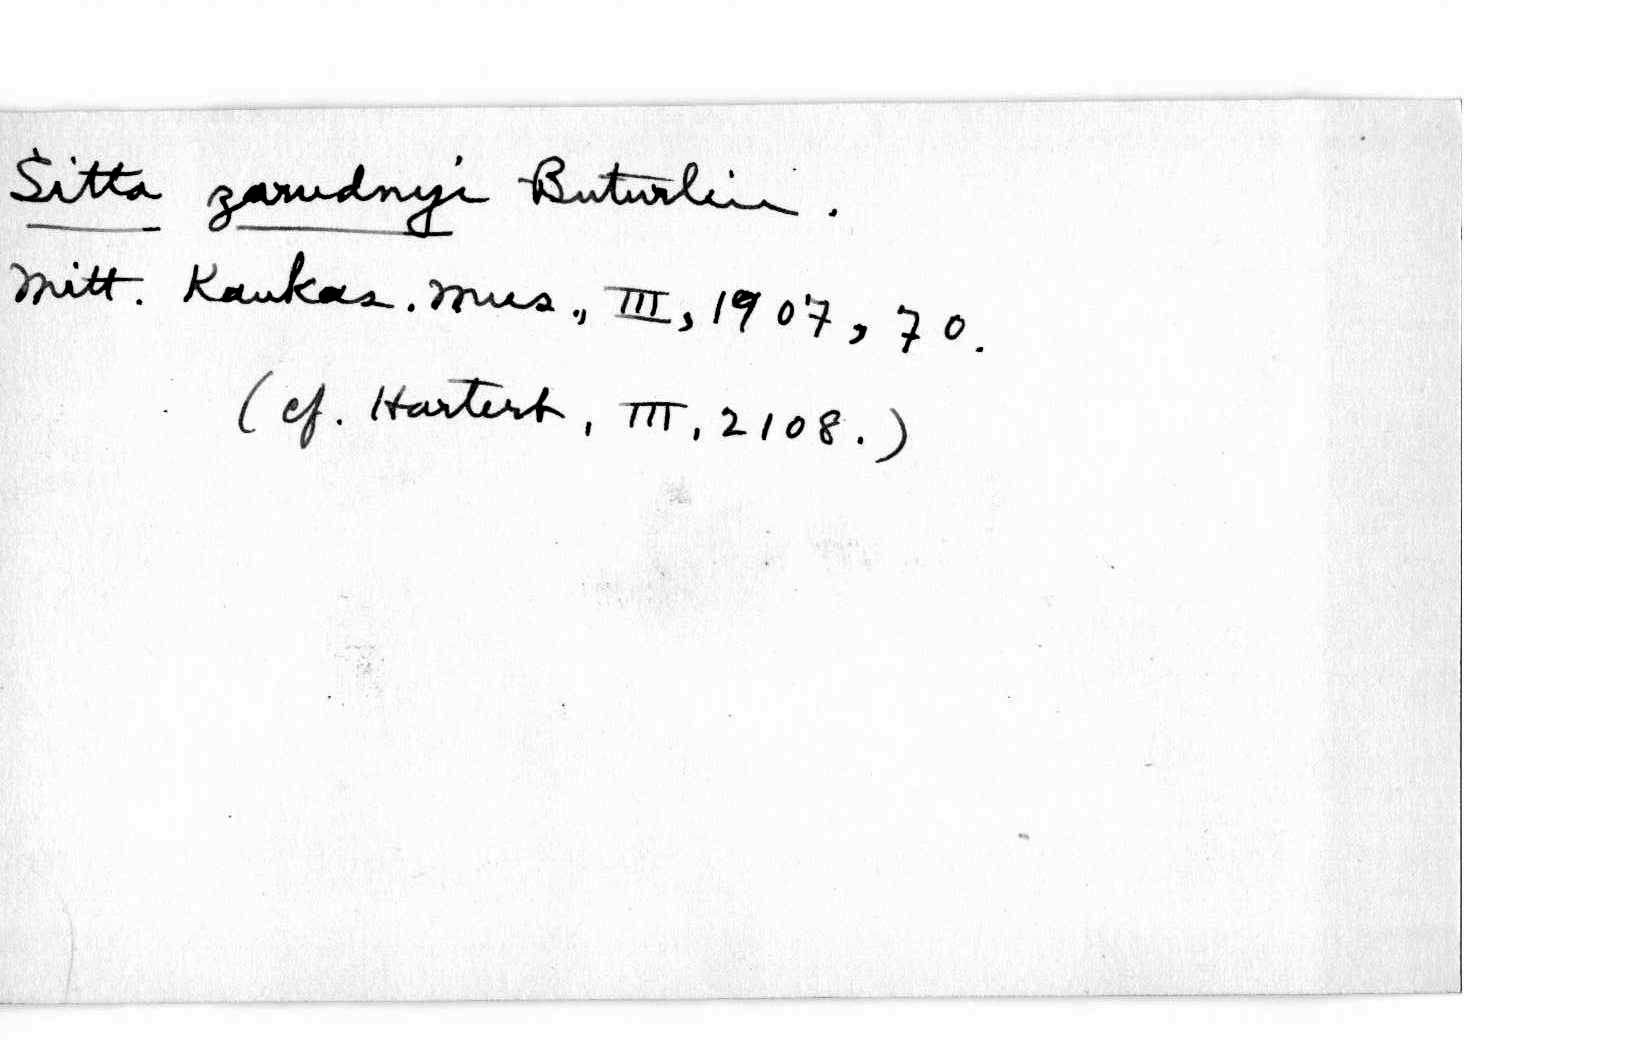 Sitta zarudnyi Buturlin.
Mitt. Kaukas. Mus., III, 1907, 70.
(cf. Hartert, III, 2108.)